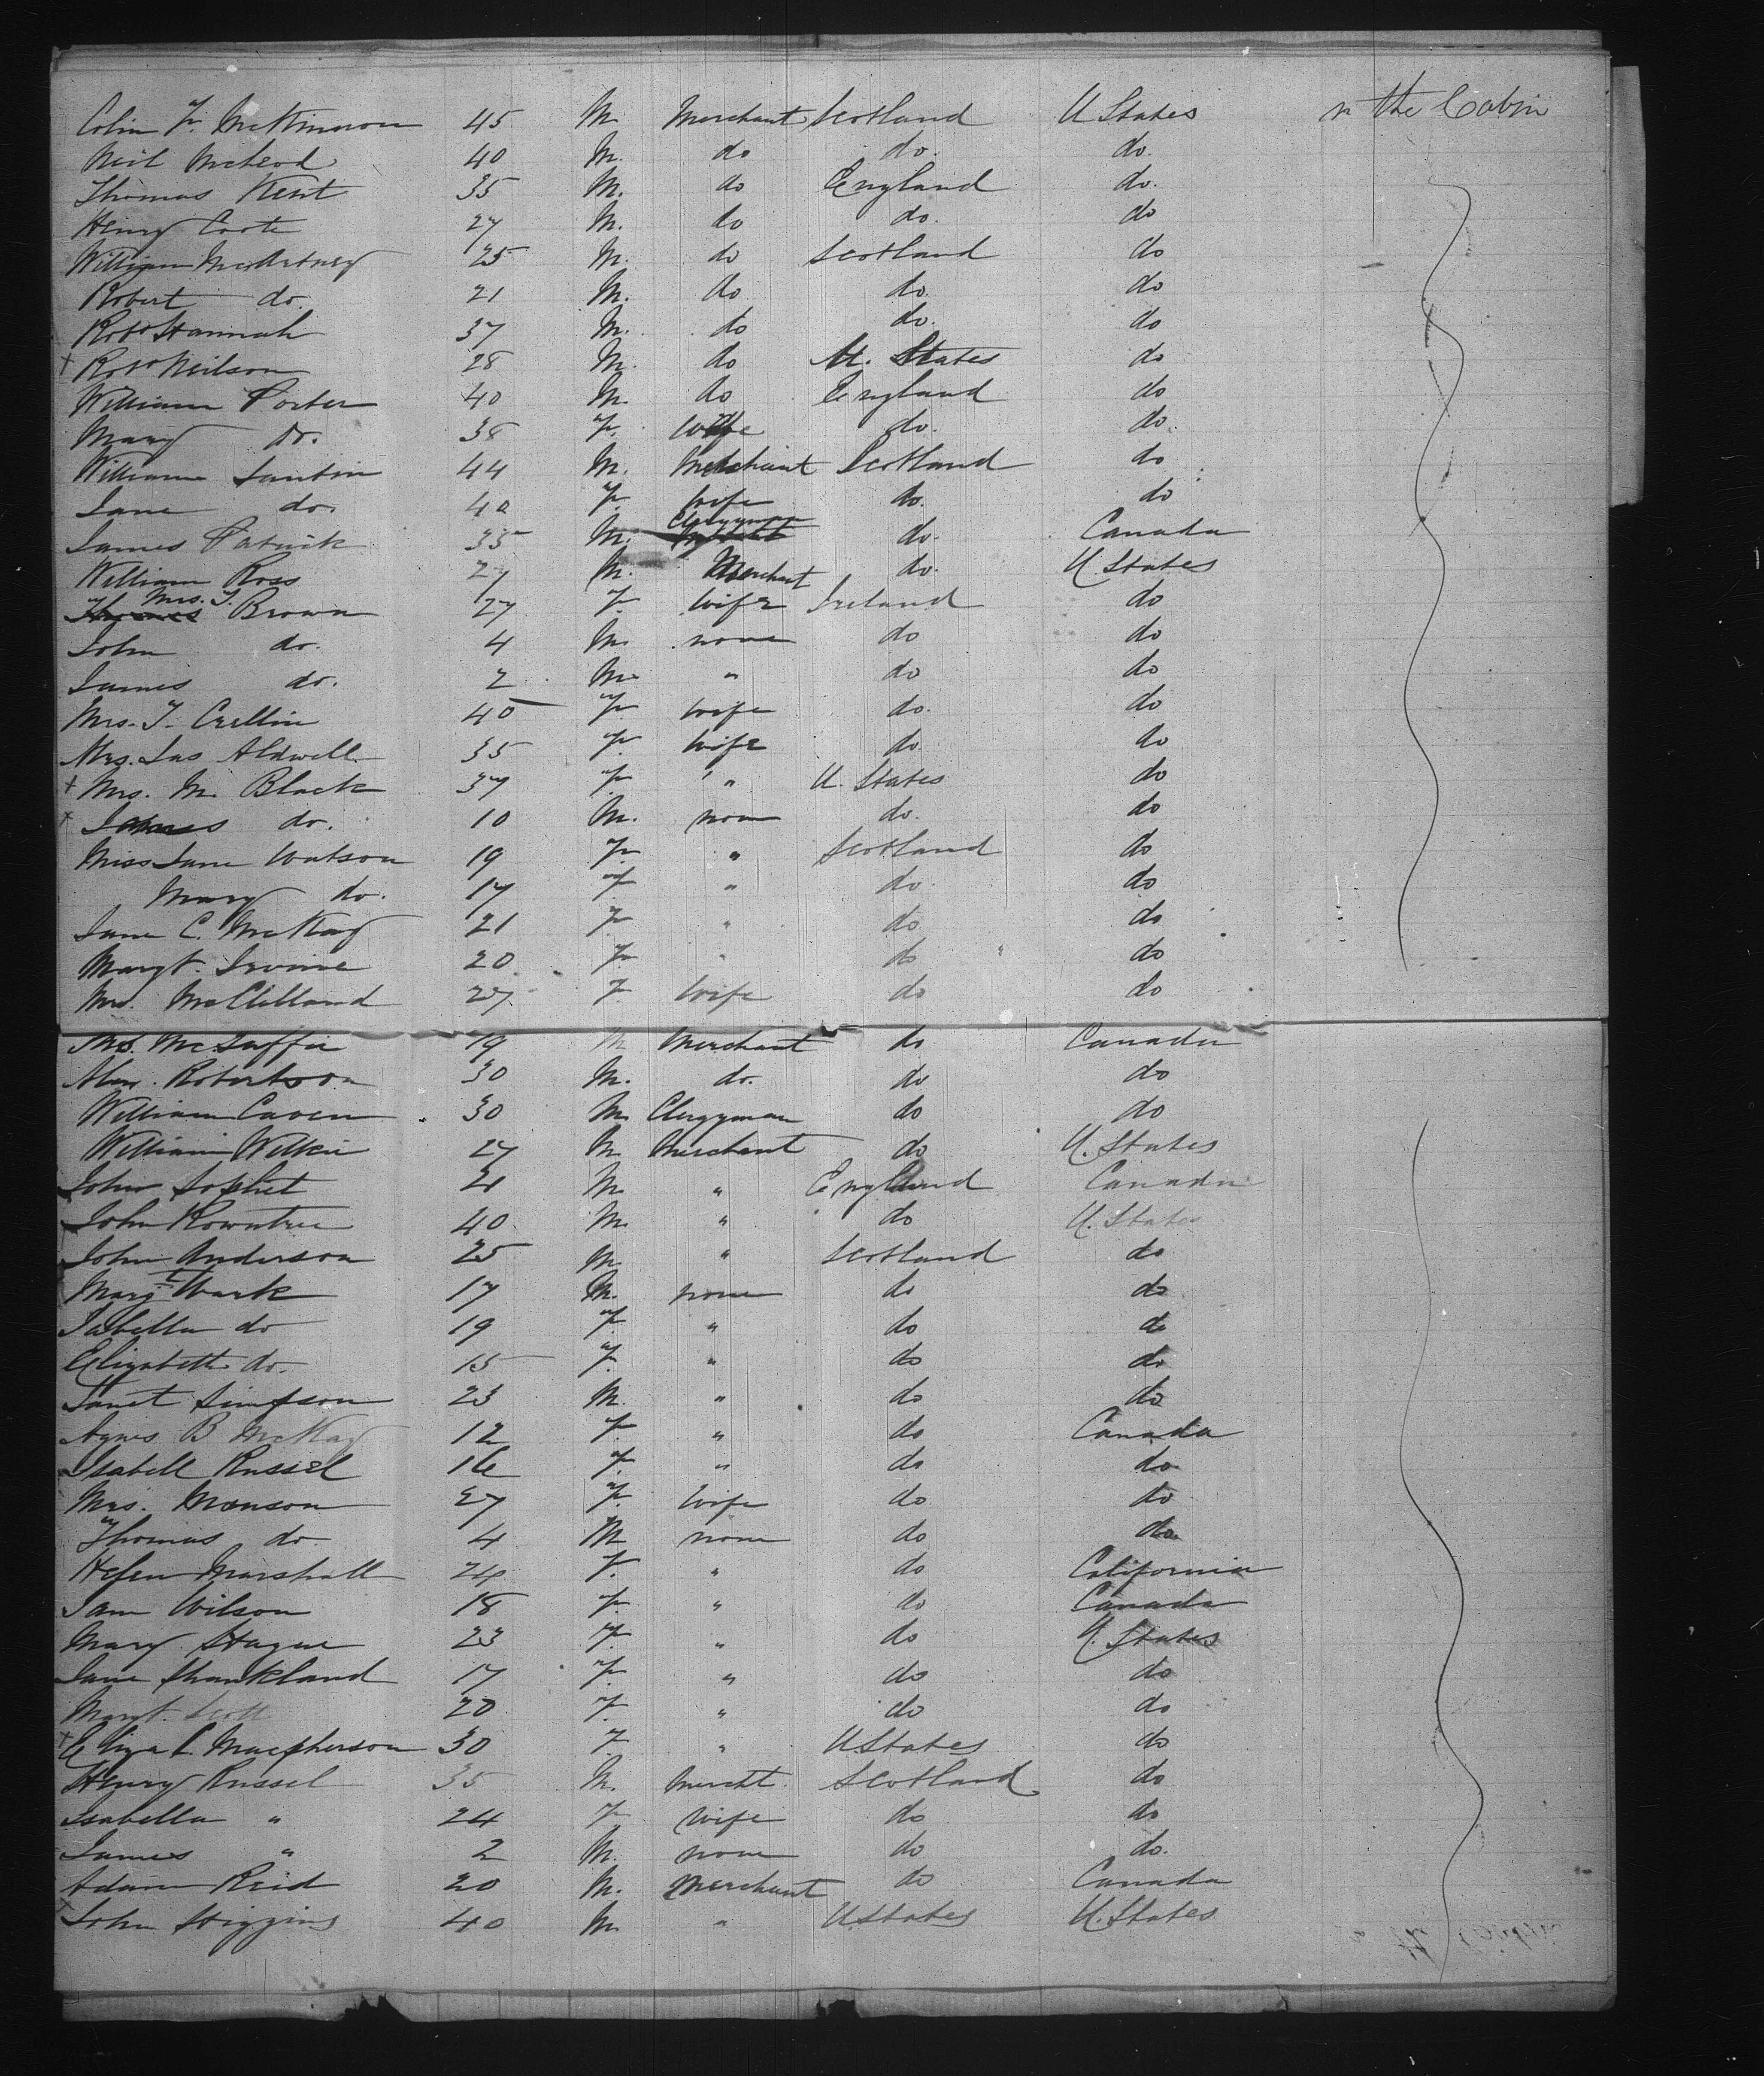 Colin F. McKinnon 45 M. Merchant Scotland U States in the Cabin
Neil McLeod 40 M. do do. do.
Thomas Kent 35 M. do England do.
Henry Coote 27 M. do do. do
William McArtney 25 M. do Scotland do
Robert do. 21 M. do do. do
Robt Hannah 37 M. do do. do
+ Robt Neilson 28 M. do U. States do
William Porter 40 M. do England do
Mary do. 38 F. Wife do. do.
William Santin 44 M. Merchant Scotland do
Jane do. 40 F. Wife do. do
James Patrick 35 M. Clergyman do. Canada
William Ross 27 M. Merchant do. U. States
Mrs. T. Brown 27 F. Wife Ireland do
John do. 4 M. none do do
James do. 2 M. " do do
Mrs. T. Crellin 40 F. wife do. do
Mrs. Jas Aldwell 35 F. wife do. do
+ Mrs. M. Black 37 F. " U. States do
+ James do. 10 M. none do. do
Miss Jane Watson 19 F. " Scotland do
Mary do. 17 F " do. do
Jane C. McKay 21 F " do do
Margt. Irvine 20 F. " do do
Mrs. McClelland 27 F wife do do
McGuffie 19 M Merchant do Canada
Alex. Robertson 30 M. do. do do
William Caven 30 M. Clergyman do do
William Wilkie 27 M Merchant do U. States
John 21 M. " England Canada
John Rowntree 40 M. " do U. States
John Anderson 25 M. " Scotland do
Margt Wark 17 M. none do do
Isabella do 19 F " do do
Elizabeth do. 15 F. " do do
Janet Simpson 23 M. " do do
Agnes B McKay 12 F. " do Canada
Isabell Russel 16 F. " do do
Mrs. Monson 27 F. Wife do do
Thomas do 4 M none do do
Helen Marshall 24 F. " do California
Jane Wilson 18 F. " do Canada
Mary Hague 23 F. " do U. States
Jane Shankland 17 F. " do do
Margt. Scott 20 F. " do do
+ Eliza L. Macpherson 30 F. " U States do
Henry Russel 35 M. Mercht. Scotland do
Isabella " 24 F wife do do
James " 2 M. none do do.
Adam Reid 20 M. Merchant do Canada
John Higgins 40 M. " U States U. States